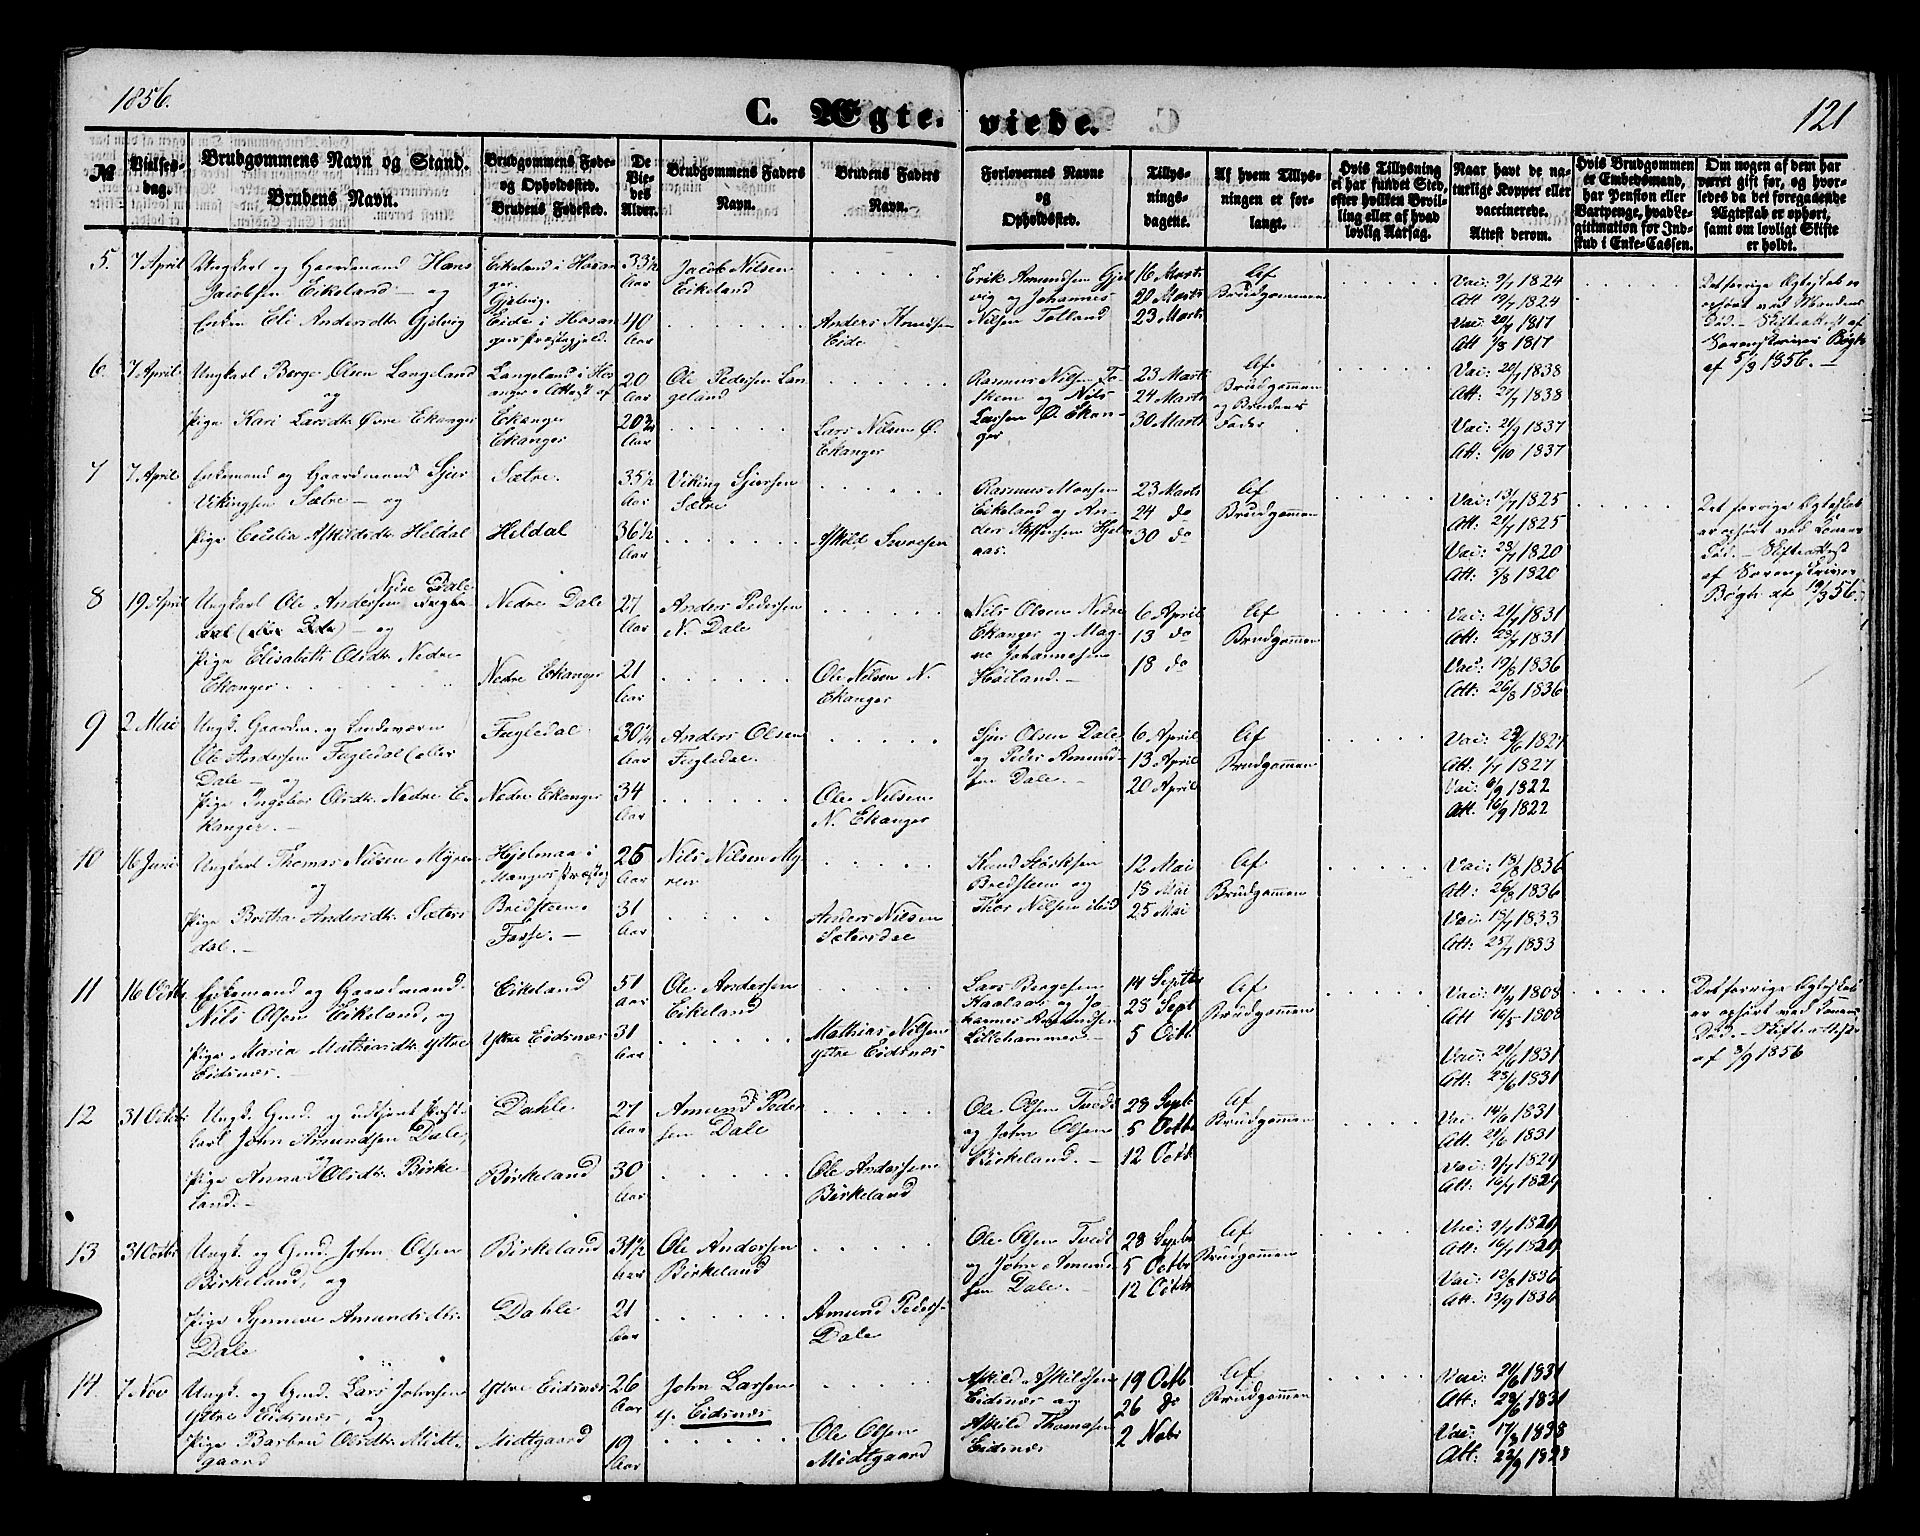 1856.
C. Ægte- viede.
121
№
Vielses-
dag.
Brudgommens Navn og Stand.
Brudens Navn.
Brudgommens Føde-
og Opholdssted.
Brudens Fødested.
De
Vie-
des
Alder.
Brudgommens Faders
Navn.
Brudens Faders
Navn.
Forlovernes Navne
og
Opholdssted.
Tillys-
nings-
dagene.
Af hvem Tillys-
ningen er for-
langt.
Hvis Tillysning
ei har fundet Sted,
efter hvilken Bevil-
ling eller af hvad
lovlig Aarsag.
Naar havt de na-
turlige Kopper eller
vaccinerede.
Attest derom.
Hvis Brudgommen
er Embedsmand,
har Pension eller
Vartpenge, hvad Le-
gitimation for Ind-
skud i Enke-Cassen.
Om nogen af dem har
været gift før, og hvor-
ledes da det foregaaende
Ægteskab er ophørt,
samt om lovligt Skifte
er holdt.
5. 7 April Ungkarl og Gaardmand Hans
Jacobsen Eikeland – og
Enken Eli Andersdtr Gjelvig
Eikeland i Hosan
ger.
Gjelvig.
Eide i Hosan
gers Præstegjeld.
33½
Aar
40
Aar
Jacob Nilsen
Eikeland
Anders Knudsen
Eide
Erik Amundsen Gjel
vig og Johannes
Nilsen Totland
16 Marts
20 Marts
23 Marts
Af
Brudgommen
Vac: 9/7 1824
Att 19/7 1824
Vac: 20/7 1817
Att 1/8 1817
Det forrige Ægteskab er
ophørt ved Mandens
Død. – Skifteattest af
Sorenskriver Bøgh
af 5/3 1856. –
6. 7 April Ungkarl Børge Olsen Langeland
og
Pige Kari Larsdtr Øvre Ekanger
Langeland i Hos
anger
Ekanger
Ekanger
20
Aar
20¾
Aar
Ole Pedersen Lan
geland
Lars Nilsen Ø.
Ekanger
Rasmus Nilsen Fo-
skem og Nils
Larsen Ø. Ekan-
ger
23 Marts
24 Marts
30 Marts
Af
Brudgommen
og Brudens
Fader
Vac: 20/7 1838
Att: 27/7 1838
Vac: 21/9 1837
Att: 6/10 1837
7 7 April Enkemand og Gaardmand Sjur
Vikingsen Sætre – og
Pige Cecilia Askildsdtr Heldal
Sætre.
Heldal
35½
Aar
36½
Aar
Viking Sjursen
Sætre
Askild Iversen
Rasmus Monsen
Eikeland og An-
ders Steffensen Hjelm
aas.
23 Marts
24 do
30 do
Af
Brudgommen
Vac: 13/7 1825
Att: 21/7 1825
Vac: 23/7 1820
Att: 5/8 1820
Det forrige Ægteskab
er ophørt ved Konens
Død. – Skifteattest
af Sorenskriver
Bøgh af 19/3 56.
8 19 April Ungkarl Ole Andersen Nedre Dale
og
Pige Elisabeth Olsdtr Nedre
Ekanger
Nedre Dale
Nedre Ekanger
27
Aar
21
Aar
Anders Pedersen
N. Dale
Ole Nilsen N.
Ekanger
Nils Olsen Nedre
Ekanger og Mag-
ne Johannesen
Høiland. –
6 April
13 do
18 do
Af
Brudgommen
Vac: 21/7 1831
Att: 29/7 1831
Vac: 19/8 1836
Att: 26/8 1836
9 2 Mai Ungk. Gaardm. og Landværn
Ole Andersen Fugledal (eller
Dale – og
Pige Ingebor Olsdtr Nedre E.
kanger. –
Fugledal
Nedre Ekanger
30¼
Aar
34
Aar
Anders Olsen
Fugledal.
Ole Nilsen
N. Ekanger
Sjur Olsen Dale
og Peder Amund-
sen Dale. –
6 April
13 April
20 April
Af
Brudgommen
Vac: 23/6 1827
Att: 1/7 1827
Vac: 6/9 1822
Att: 16/9 1822
10 16 Juni Ungkarl Thomas Nilsen Myren
og
Pige Britha Andersdtr Sæters
dal. –
Hjelmaa i
Mangers Præstegj
Bredsteen.
Fosse. –
26
Aar
31
Aar
Nils Nilsen My
ren
Anders Nilsen
Sætersdal
Knud Størksen
Bredsteen og
Thor Nilsen ibid
12 Mai
18 Mai
25 Mai
Af
Brudgommen
Vac: 19/8 1836
Att: 26/8 1836
Vac: 18/7 1833
Att: 25/7 1833
11 16 Octbr Enkemand og Gaardmand
Nils Olsen Eikeland, og
Pige Maria Mathiasdtr Yttre
Eidsnæs. –
Eikeland
Yttre Eidsnæs
51
Aar
31
Aar
Ole Andersen
Eikeland
Mathias Nilsen
Yttre Eidsnæs
Lars Børgesen
Haalsaas og Jo
hannes Amundsen
Lillehammer –
14 Septbr
28 Sept
5 Octb.
Af
Brudgommen
Vac: 19/4 1808
Att 16/5 1808
Vac: 20/6 1831
Att: 28/6 1831
Det forrige Ægteskab
er ophørt ved Konens
Død. – Skifteattest
af 3/9 1856
12 31 Octbr Ungk. Gmd. og udtjent Søst.
karl John Amundsen Dale,
og
Pige Anna Olsdtr Birke
land. –
Dahle
Birkeland
27
Aar
30
Aar
Amund Peder
sen Dale
Ole Andersen
Birkeland
Ole Olsen Tvedt
og John Olsen
Birkeland. –
28 Sept.
5 Octbr
12 Octb.
Af
Brudgommen
Vac 14/6 1831
Att: 21/6 1831
Vac: 9/7 1829
Att: 16/7 1829
13 31 Octbr Ungk. og Gmd. John Olsen
Birkeland, og
Pige Synneve Amunds dtr.
Dale
Birkeland
Dahle
31½
Aar
21
Aar
Ole Andersen
Birkeland
Amund Peders.
Dale
Ole Olsen Tvedt
og John Amund
sen Dale. –
28 Septb
5 Octbr
12 Octbr
Af
Brudgommen
Vac: 9/7 1829
Att: 16/7 1829
Vac: 12/8 1836
Att: 13/9 1836
14. 7 Nov Ungk. og Gmd. Lars Johnsen
Yttre Eidsnæs, og
Pige Barbru Olsdtr Midt-
gaard
Yttre Eidsnæs
Midtgaard
26
Aar
19
Aar
John Larsen
y. Eidsnæs
Ole Olsen
Midtgaard
Askild Askildsen
Eidsnæs og
Askild Thomasen
Eidsnæs
19 Octb
26 do
2 Nobr
Af
Brudgommen
Vac: 21/6 1831
Att: 29/6 1831
Vac: 17/8 1838
Att: 23/9 1838